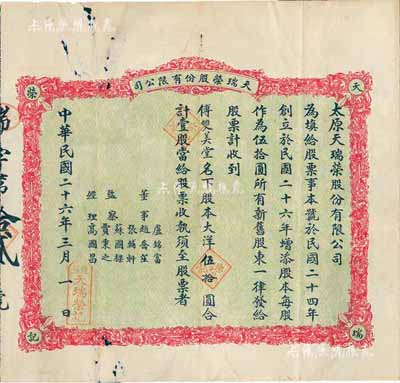 天瑞榮股份有限公司
天
榮
瑞
記
太原天瑞榮股份有限公司
為填給股票事本號於民國二十四年
創立於民國二十六年增添股本每股
作為伍拾圓所有新舊股東一律發給
股票計收到
傅雙美堂名下股本大洋伍拾圓合
計壹股當給股票收執須至股票者
董事
盧錦富
趙喬笙
張輔軒
監察
蘇國樑
賈秉之
經理高國昌
中華民國二十六年三月一日
字第拾貳號